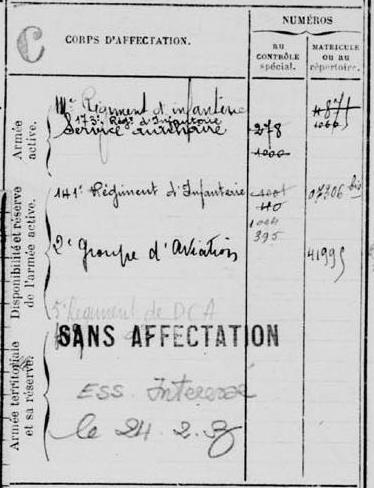 C
CORPS D'AFFECTATION.
NUMÉROS
AU CONTRÔLE spécial.
MATRICULE ou au répertoire.
Armée active.
Régiment d'infanterie
173e Régt d'Infanterie
Service auxiliaire
278
1000
Disponibilité et réserve de l'armée active.
141e Régiment d'Infanterie
07306 bis
40
1004
395
2e Groupe d'Aviation
41995
5e Régiment de DCA
SANS AFFECTATION
Armée territoriale et sa réserve.
ESS
le 24.2.